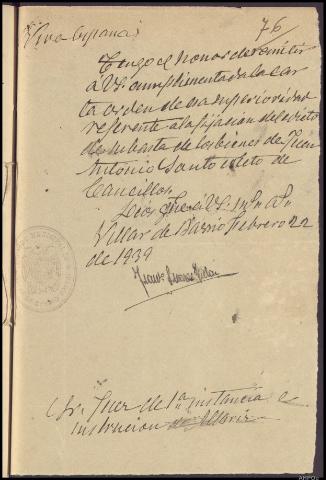 Viva España
76
Tengo el honor de remitir
a VS. cumplimentada la car
ta orden de esa superioridad
referente a la fijacion del edicto
de subasta de los bienes de
Antonio Santo de
Dios Gue a VS. ms. as.
Villar de Barrio Febrero 22
de 1939
Sr. Juez de 1ª instancia e
instrucion Allariz